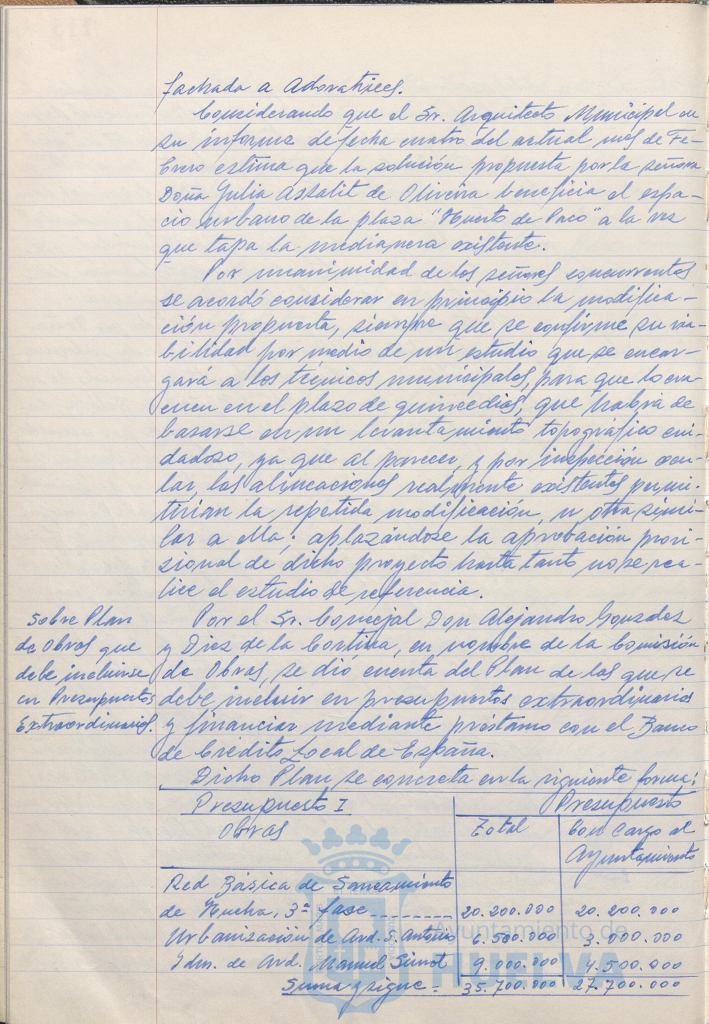 fachada a Adoratrices.
Considerando que el Sr. Arquitecto Municipal en
su informe de fecha cuatro del actual mes de Fe-
brero estima que la solución propuesta por la señora
Doña Julia Astalit de Oliveira beneficia el espa-
cio urbano de la plaza "Huerto de Paco" a la vez
que tapa la medianera existente.
Por unanimidad de los señores concurrentes
se acordó considerar en principio la modifica-
ción propuesta, siempre que se confirme su via-
bilidad por medio de un estudio que se encar-
gará a los técnicos municipales, para que lo eva-
cuen en el plazo de quince dias, que habrá de
basarse en un levantamiento topográfico cui-
dadoso, ya que al parecer, y por inspección ocu-
lar, las alineaciones realmente existentes permi-
tirían la repetida modificación, u otra simi-
lar a ella; aplazándose la aprobación provi-
sional de dicho proyecto hasta tanto no se rea-
lice el estudio de referencia.
Sobre Plan
de Obras que
debe incluirse
en Presupuestos
Extraordinarios.
Por el Sr. Concejal Don Alejandro Gonzalez
y Diez de la Cortina, en nombre de la Comisión
de Obras, se dió cuenta del Plan de las que se
debe incluir en presupuestos extraordinarios
y financiar mediante préstamo con el Banco
de Credito Local de España.
Dicho Plan se concreta en la siguiente forma:
Presupuesto I. Presupuesto
Obras Total Con cargo al
Ayuntamiento
Red Básica de Saneamiento
de Huelva, 3ª fase -------- 20.200.000 20.200.000
Urbanización de Avd. S. Antonio 6.500.000 3.000.000
Idm. de Avd. Manuel Siurot 9.000.000 4.500.000
Suma y sigue - 35.700.000 27.700.000
Ayuntamiento de
HUELVA